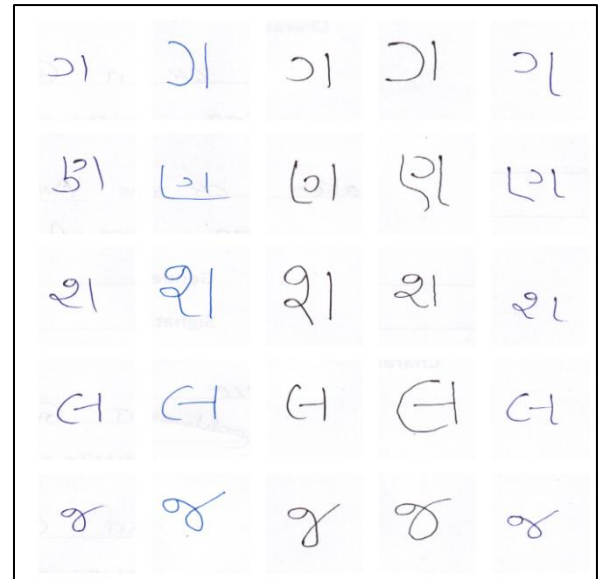 ગ ગ ગ ગ ગ
ણ ણ ણ ણ ણ
શ શ શ શ શ
લ લ લ લ લ
જ જ જ જ જ